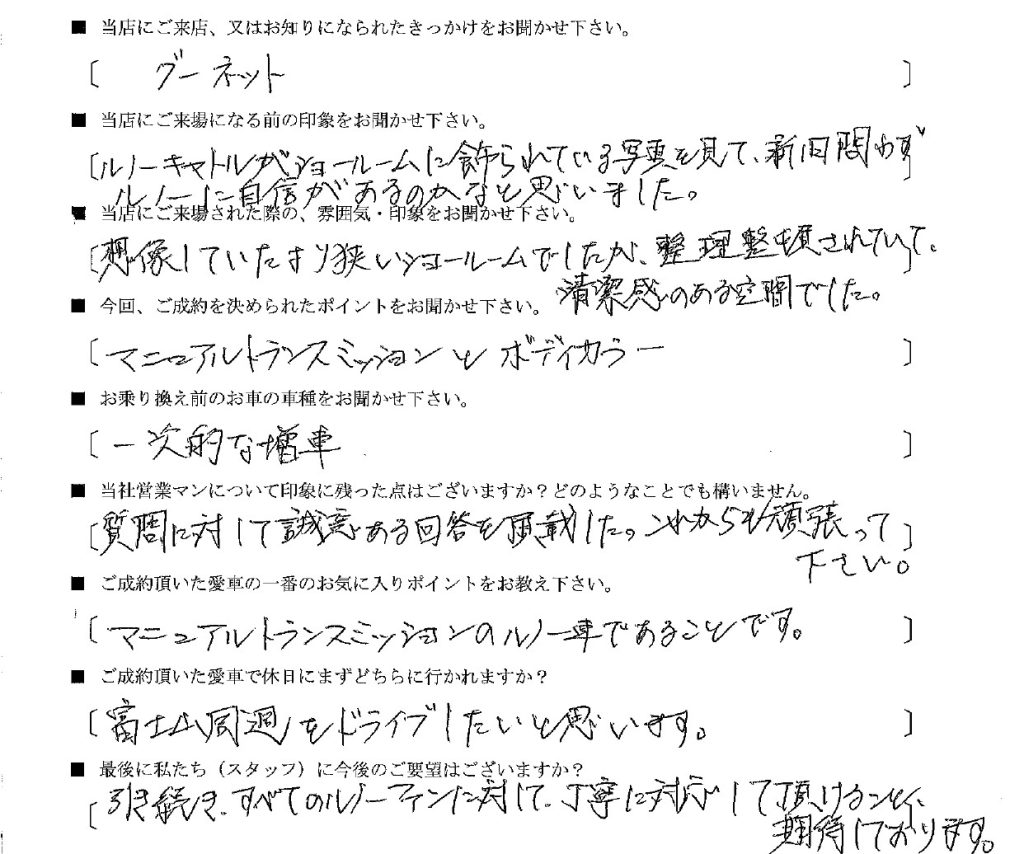 ■ 当店にご来店、又はお知りになられたきっかけをお聞かせ下さい。
[ グーネット ]
■ 当店にご来場になる前の印象をお聞かせ下さい。
[ルノーキャトルがショールームに飾られている写真を見て、新旧問わず]
ルノーに自信があるのかなと思いました。
■ 当店にご来場された際の、雰囲気・印象をお聞かせ下さい。
[想像していたより狭いショールームでしたが、整理整頓されていて、]
清潔感のある空間でした。
■ 今回、ご成約を決められたポイントをお聞かせ下さい。
[ マニュアルトランスミッションとボディカラー ]
■ お乗り換え前のお車の車種をお聞かせ下さい。
[ 一次的な増車 ]
■ 当社営業マンについて印象に残った点はございますか？どのようなことでも構いません。
[質問に対して誠意ある回答を頂戴した。これからも頑張って]
下さい。
■ ご成約頂いた愛車の一番のお気に入りポイントをお教え下さい。
[ マニュアルトランスミッションのルノー車であることです。 ]
■ ご成約頂いた愛車で休日にまずどちらに行かれますか？
[ 富士山周週をドライブしたいと思います。 ]
■ 最後に私たち（スタッフ）に今後のご要望はございますか？
[ 引き続き、すべてのルノーファンに対して、丁寧に対応して頂けること
期待しております。